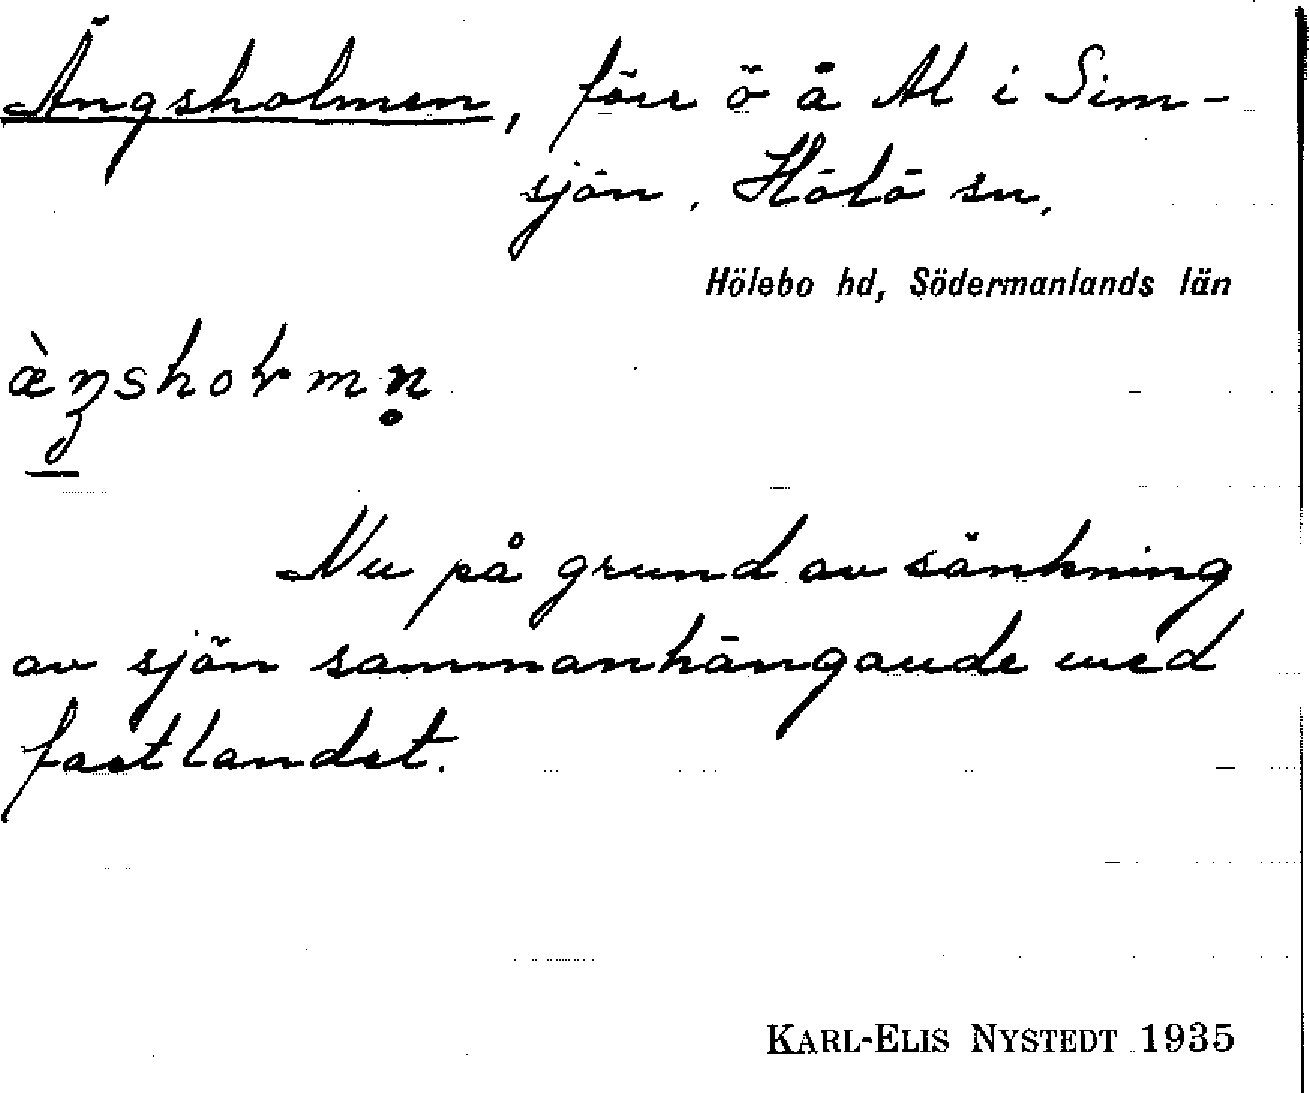 Ängsholmen, förr ö å Al i Sim-
sjön. Hölö sn.
Hölebo hd, Södermanlands län
Nu på grund av sänkning
av sjön sammanhängande med
fastlandet.
KARL-ELIS NYSTEDT 1935